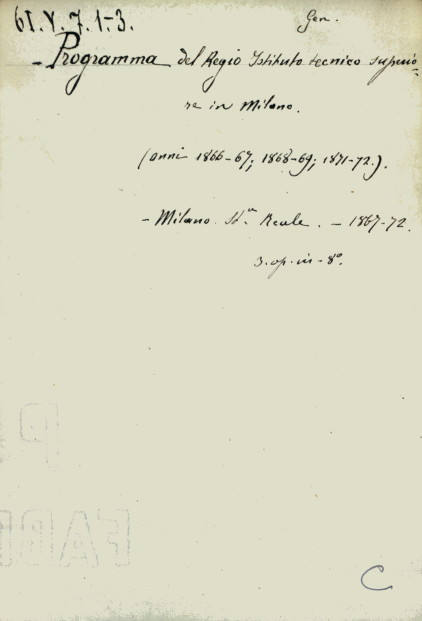 61.V.7.1-3.
Gen.
- Programma del Regio Istituto tecnico superio-
re in Milano.
(anni 1866-67; 1868-69; 1871-72.).
- Milano. St.ª Reale. - 1867-72.
3. op. in - 8º.
C